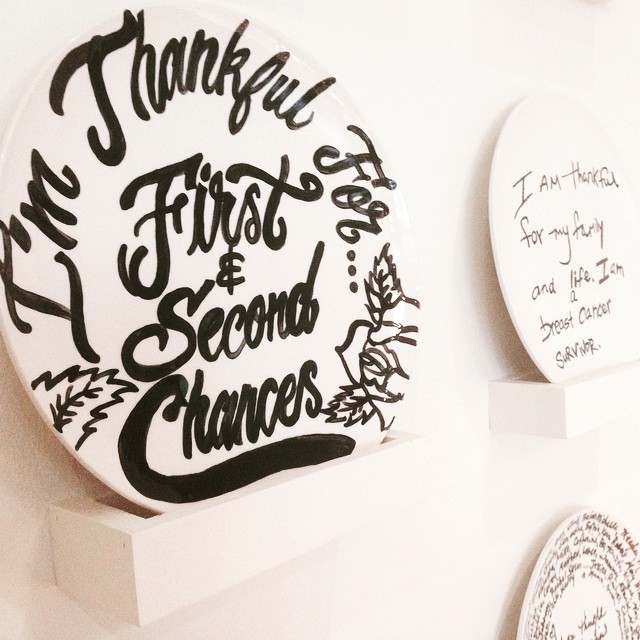 I'm Thankful For...
First
&
Second
Chances
I AM thankful
for my family
and life. I am
a
breast cancer
survivor.